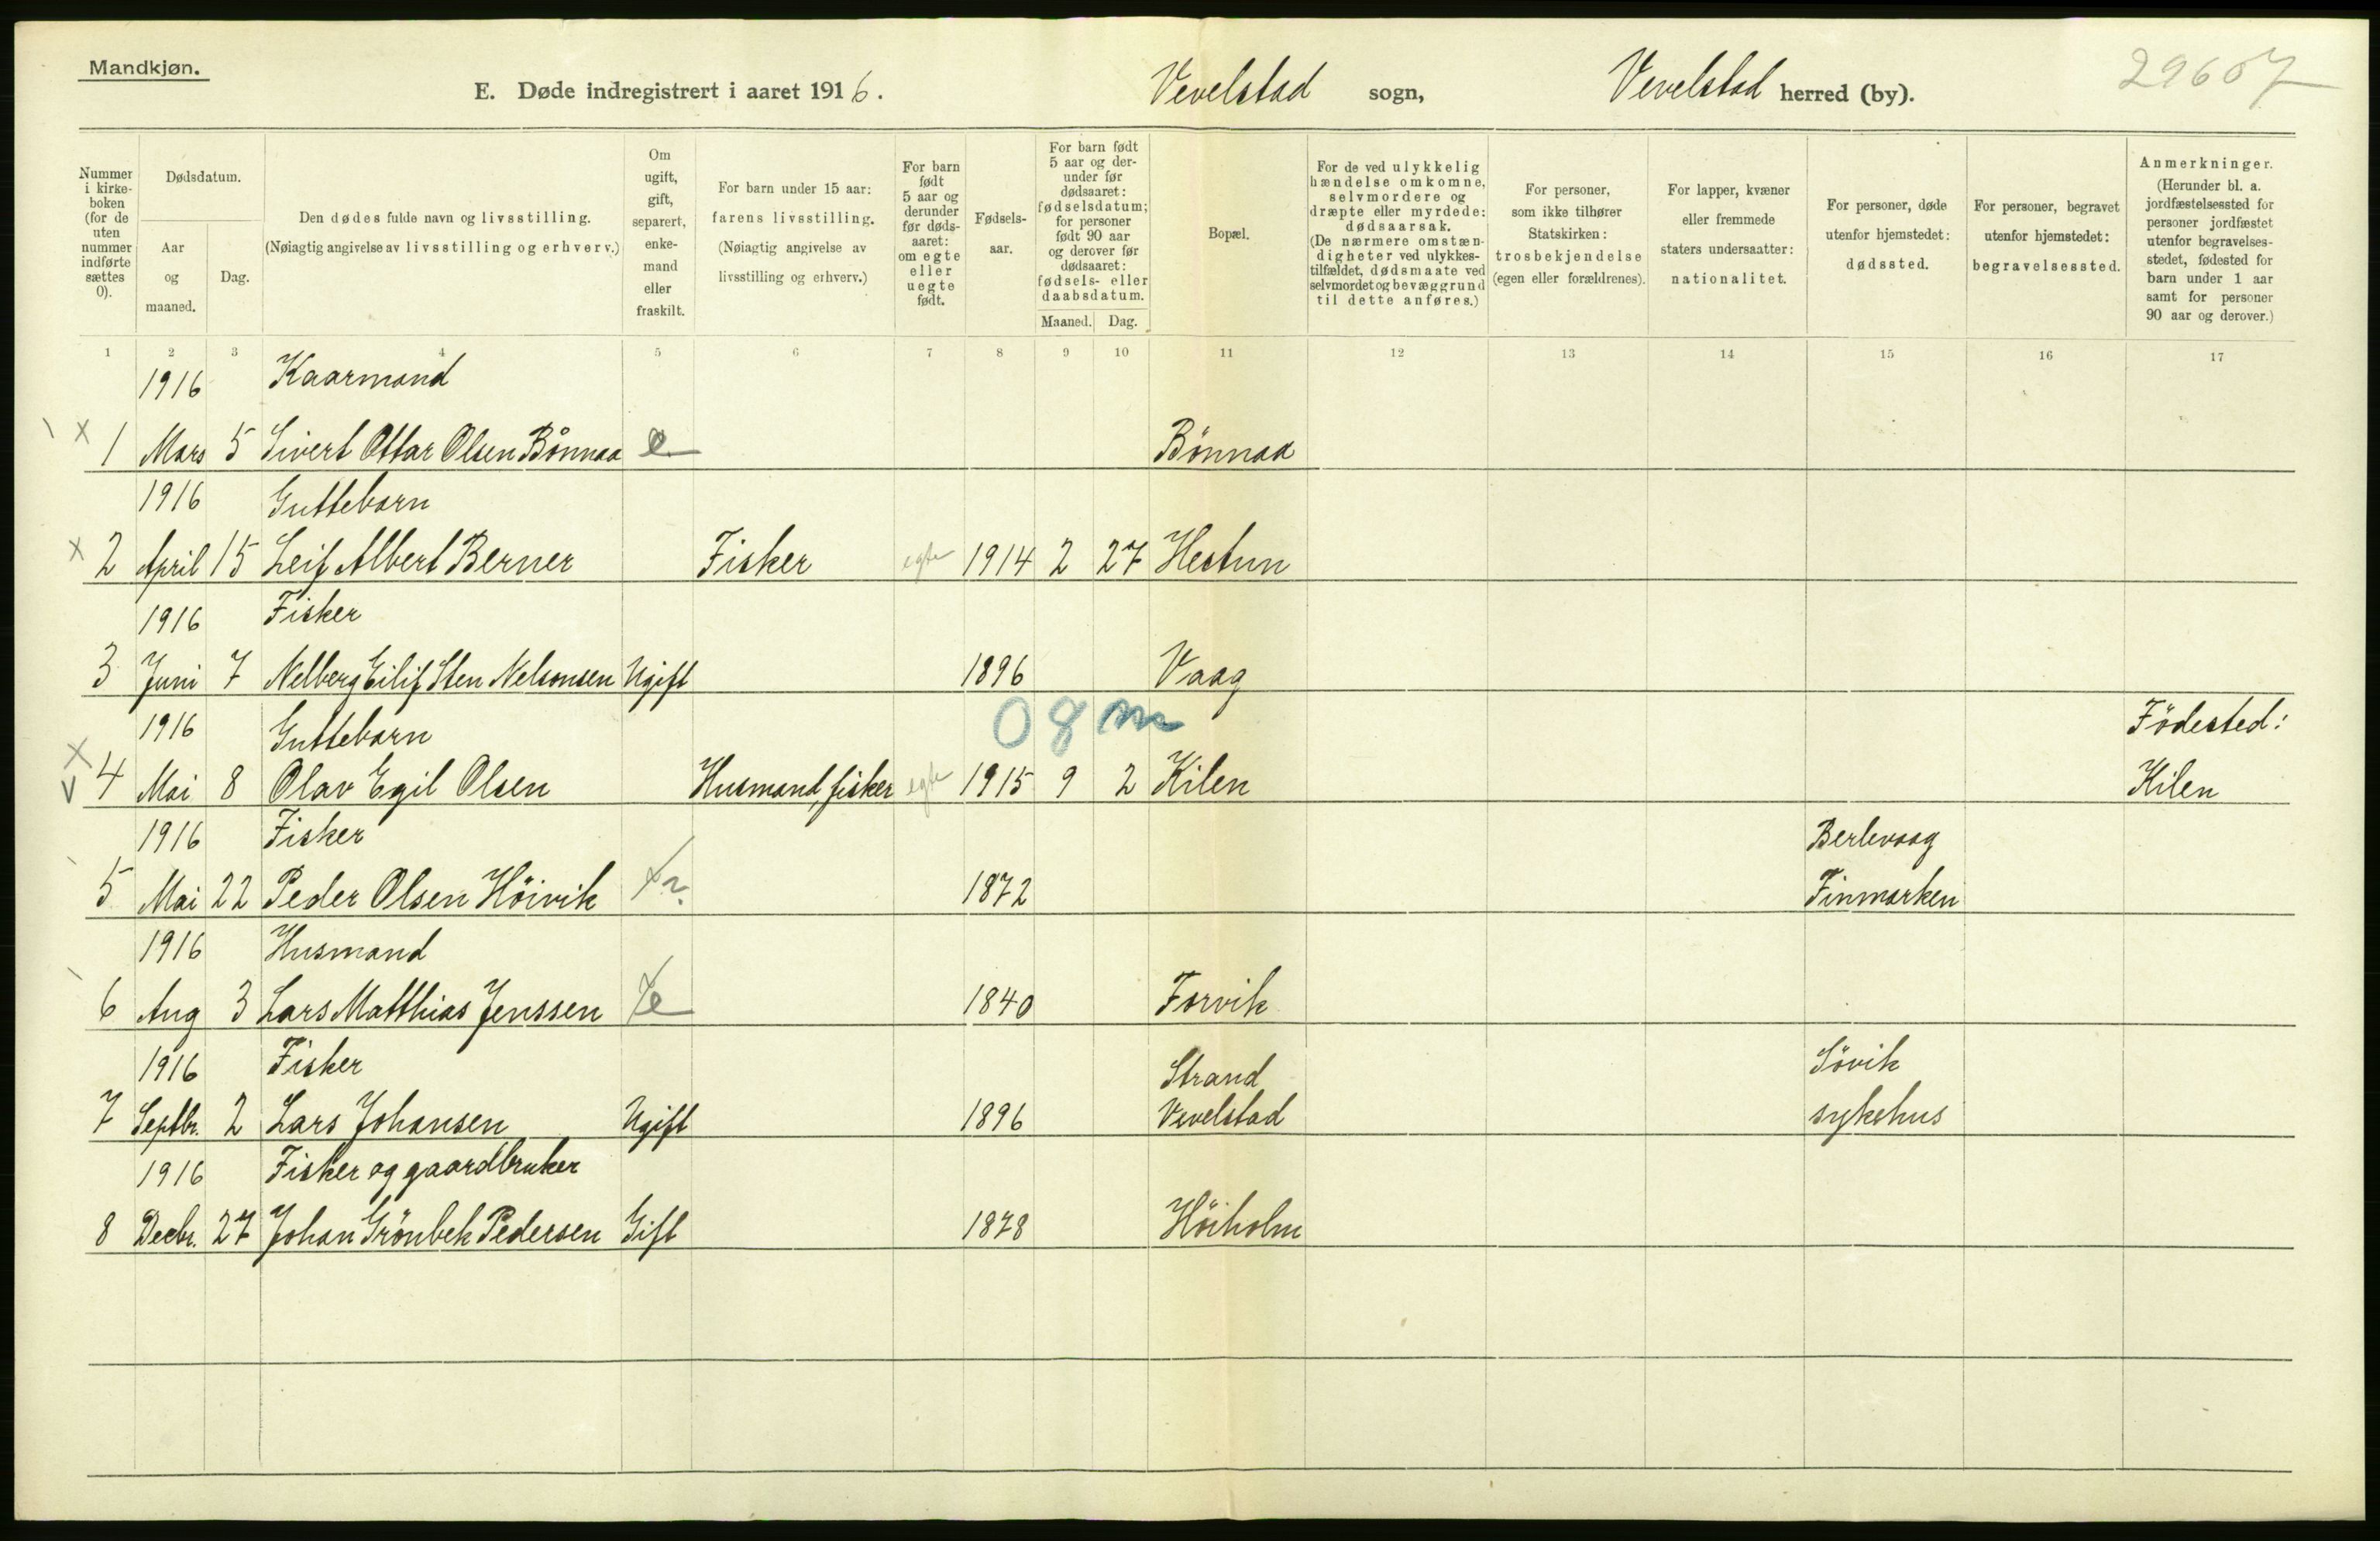 Mandkjøn.
E. Døde indregistrert i aaret 1916. Vevelstad sogn, Vevelstad herred (by). 29607
Nummer i kirke-boken (for de uten nummer indførte sættes 0).
Dødsdatum.
Aar og maaned.
Dag.
Den dødes fulde navn og livsstilling.
(Nøiagtig angivelse av livsstilling og erhverv.)
Om ugift, gift, separert, enke-mand eller fraskilt.
For barn under 15 aar: farens livsstilling.
(Nøiagtig angivelse av livsstilling og erhverv.)
For barn født 5 aar og derunder før døds-aaret: om egte eller uegte født.
Fødsels-aar.
For barn født 5 aar og der-under før dødsaaret: fødselsdatum; for personer født 90 aar og derover før dødsaaret: fødsels- eller daabsdatum.
Maaned. Dag.
Bopæl.
For de ved ulykkelig hændelse omkomne, selvmordere og dræpte eller myrdede: dødsaarsak.
(De nærmere omstæn-digheter ved ulykkes-tilfældet, dødsmaate ved selvmordet og bevæggrund til dette anføres.)
For personer, som ikke tilhører Statskirken: trosbekjendelse (egen eller forældrenes).
For lapper, kvæner eller fremmede staters undersaatter: nationalitet.
For personer, døde utenfor hjemstedet: dødssted.
For personer, begravet utenfor hjemstedet: begravelsessted.
Anmerkninger.
(Herunder bl. a. jordfæstelsessted for personer jordfæstet utenfor begravelses-stedet, fødested for barn under 1 aar samt for personer 90 aar og derover.)
1 2 3 4 5 6 7 8 9 10 11 12 13 14 15 16 17
1916 Kaarmand
x 1 Mars 5 Sivert Ottar Olsen Bönnaa e Bönnaa
1916 Guttebarn
x 2 April 15 Leif Albert Berner Fisker egte 1914 2 27 Hestun
1916 Fisker
3 Juni 7 Nelberg Eilif Sten Nelsonsen Ugift 1896 Vaag
1916 Guttebarn 0 8 m Födested:
x v 4 Mai 8 Olav Egil Olsen Husmand, fisker egte 1915 9 2 Kilen Kilen
1916 Fisker Berlevaag
5 Mai 22 Peder Olsen Höivik x ? 1872 Finmarken
1916 Husmand
6 Aug 3 Lars Matthias Jenssen x e 1840 Forvik
1916 Fisker Strand Sövik
7 Septbr. 2 Lars Johansen Ugift 1896 Vevelstad sykehus
1916 Fisker og gaardbruker
8 Decbr. 27 Johan Grönbek Pedersen Gift 1878 Höiholm